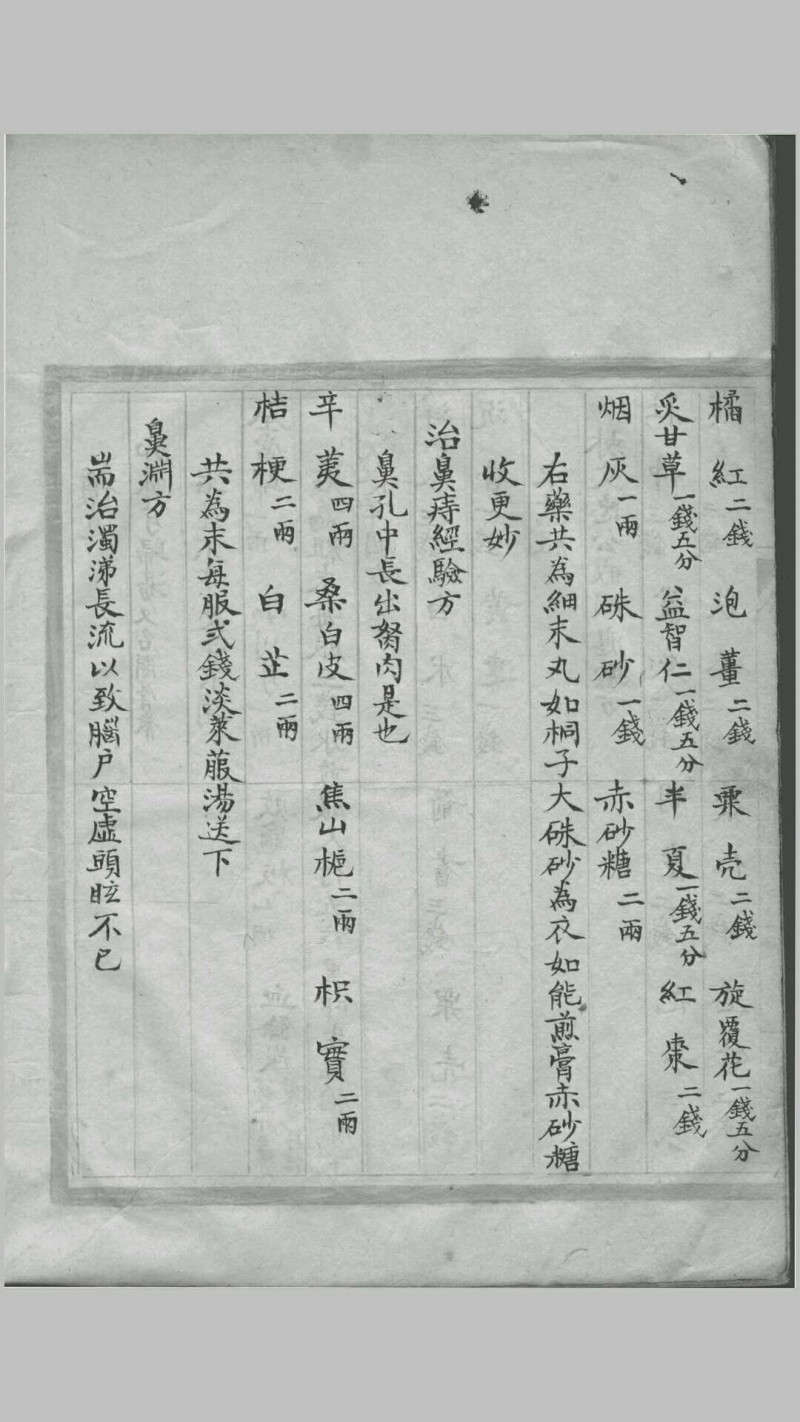 橘紅二錢　泡薑二錢　粟壳二錢　旋覆花一錢五分
炙甘草一錢五分　益智仁一錢五分　半夏一錢五分　紅棗二錢
烟灰一兩　硃砂一錢　赤砂糖二兩
右藥共為細末丸如桐子大硃砂為衣如能煎膏赤砂糖
收更妙
治鼻痔經驗方
鼻孔中長出努肉是也
辛荑四兩　桑白皮四兩　焦山梔二兩　枳實二兩
桔梗二兩　白芷二兩
共為末每服弍錢淡萊菔湯送下
鼻淵方
耑治濁涕長流以致腦户空虛頭眩不已